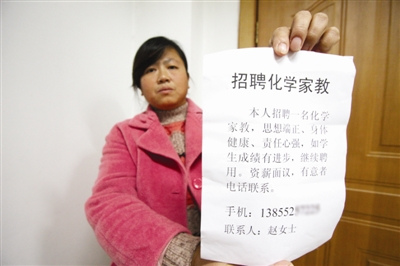 招聘化学家教
本人招聘一名化学
家教，思想端正、身体
健康、责任心强，如学
生成绩有进步，继续聘
用。资薪面议，有意者
电话联系。
手机：138552
联系人：赵女士